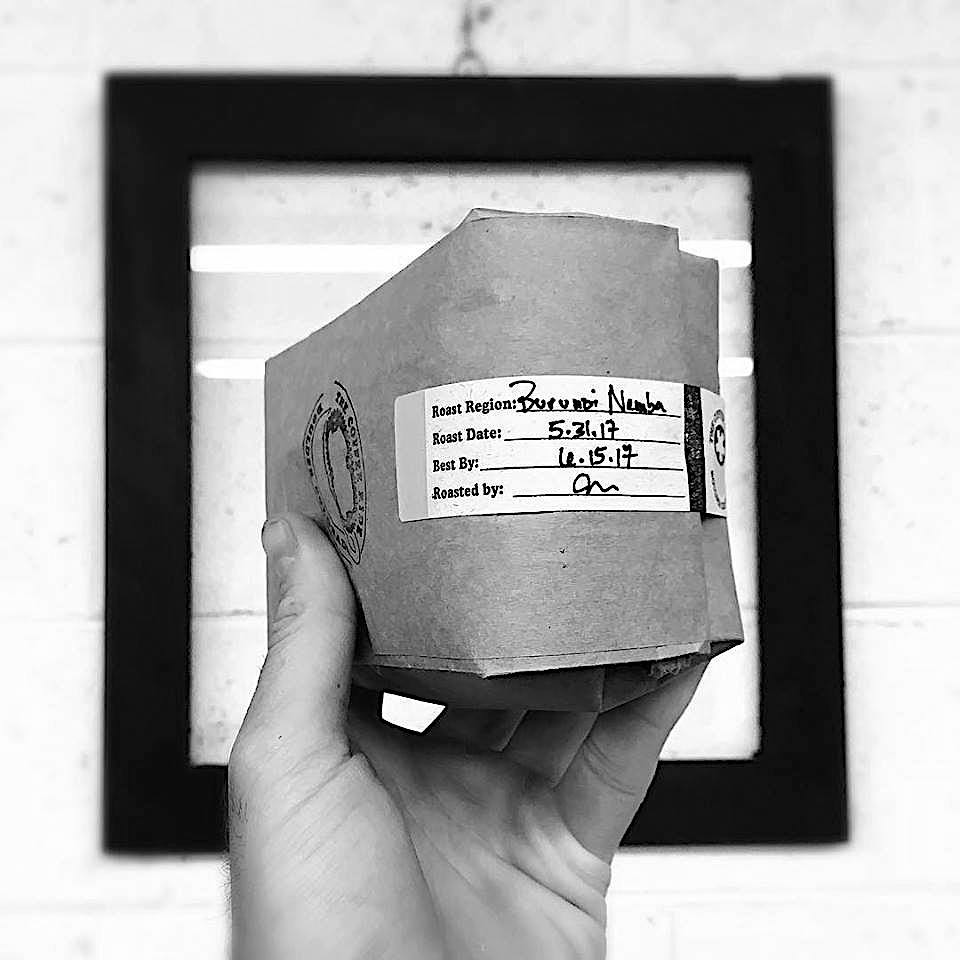 Roast Region: Burundi Nemba
Roast Date: 5.31.17
Best By: 6.15.17
Roasted by:
THE COFFEE RIDE